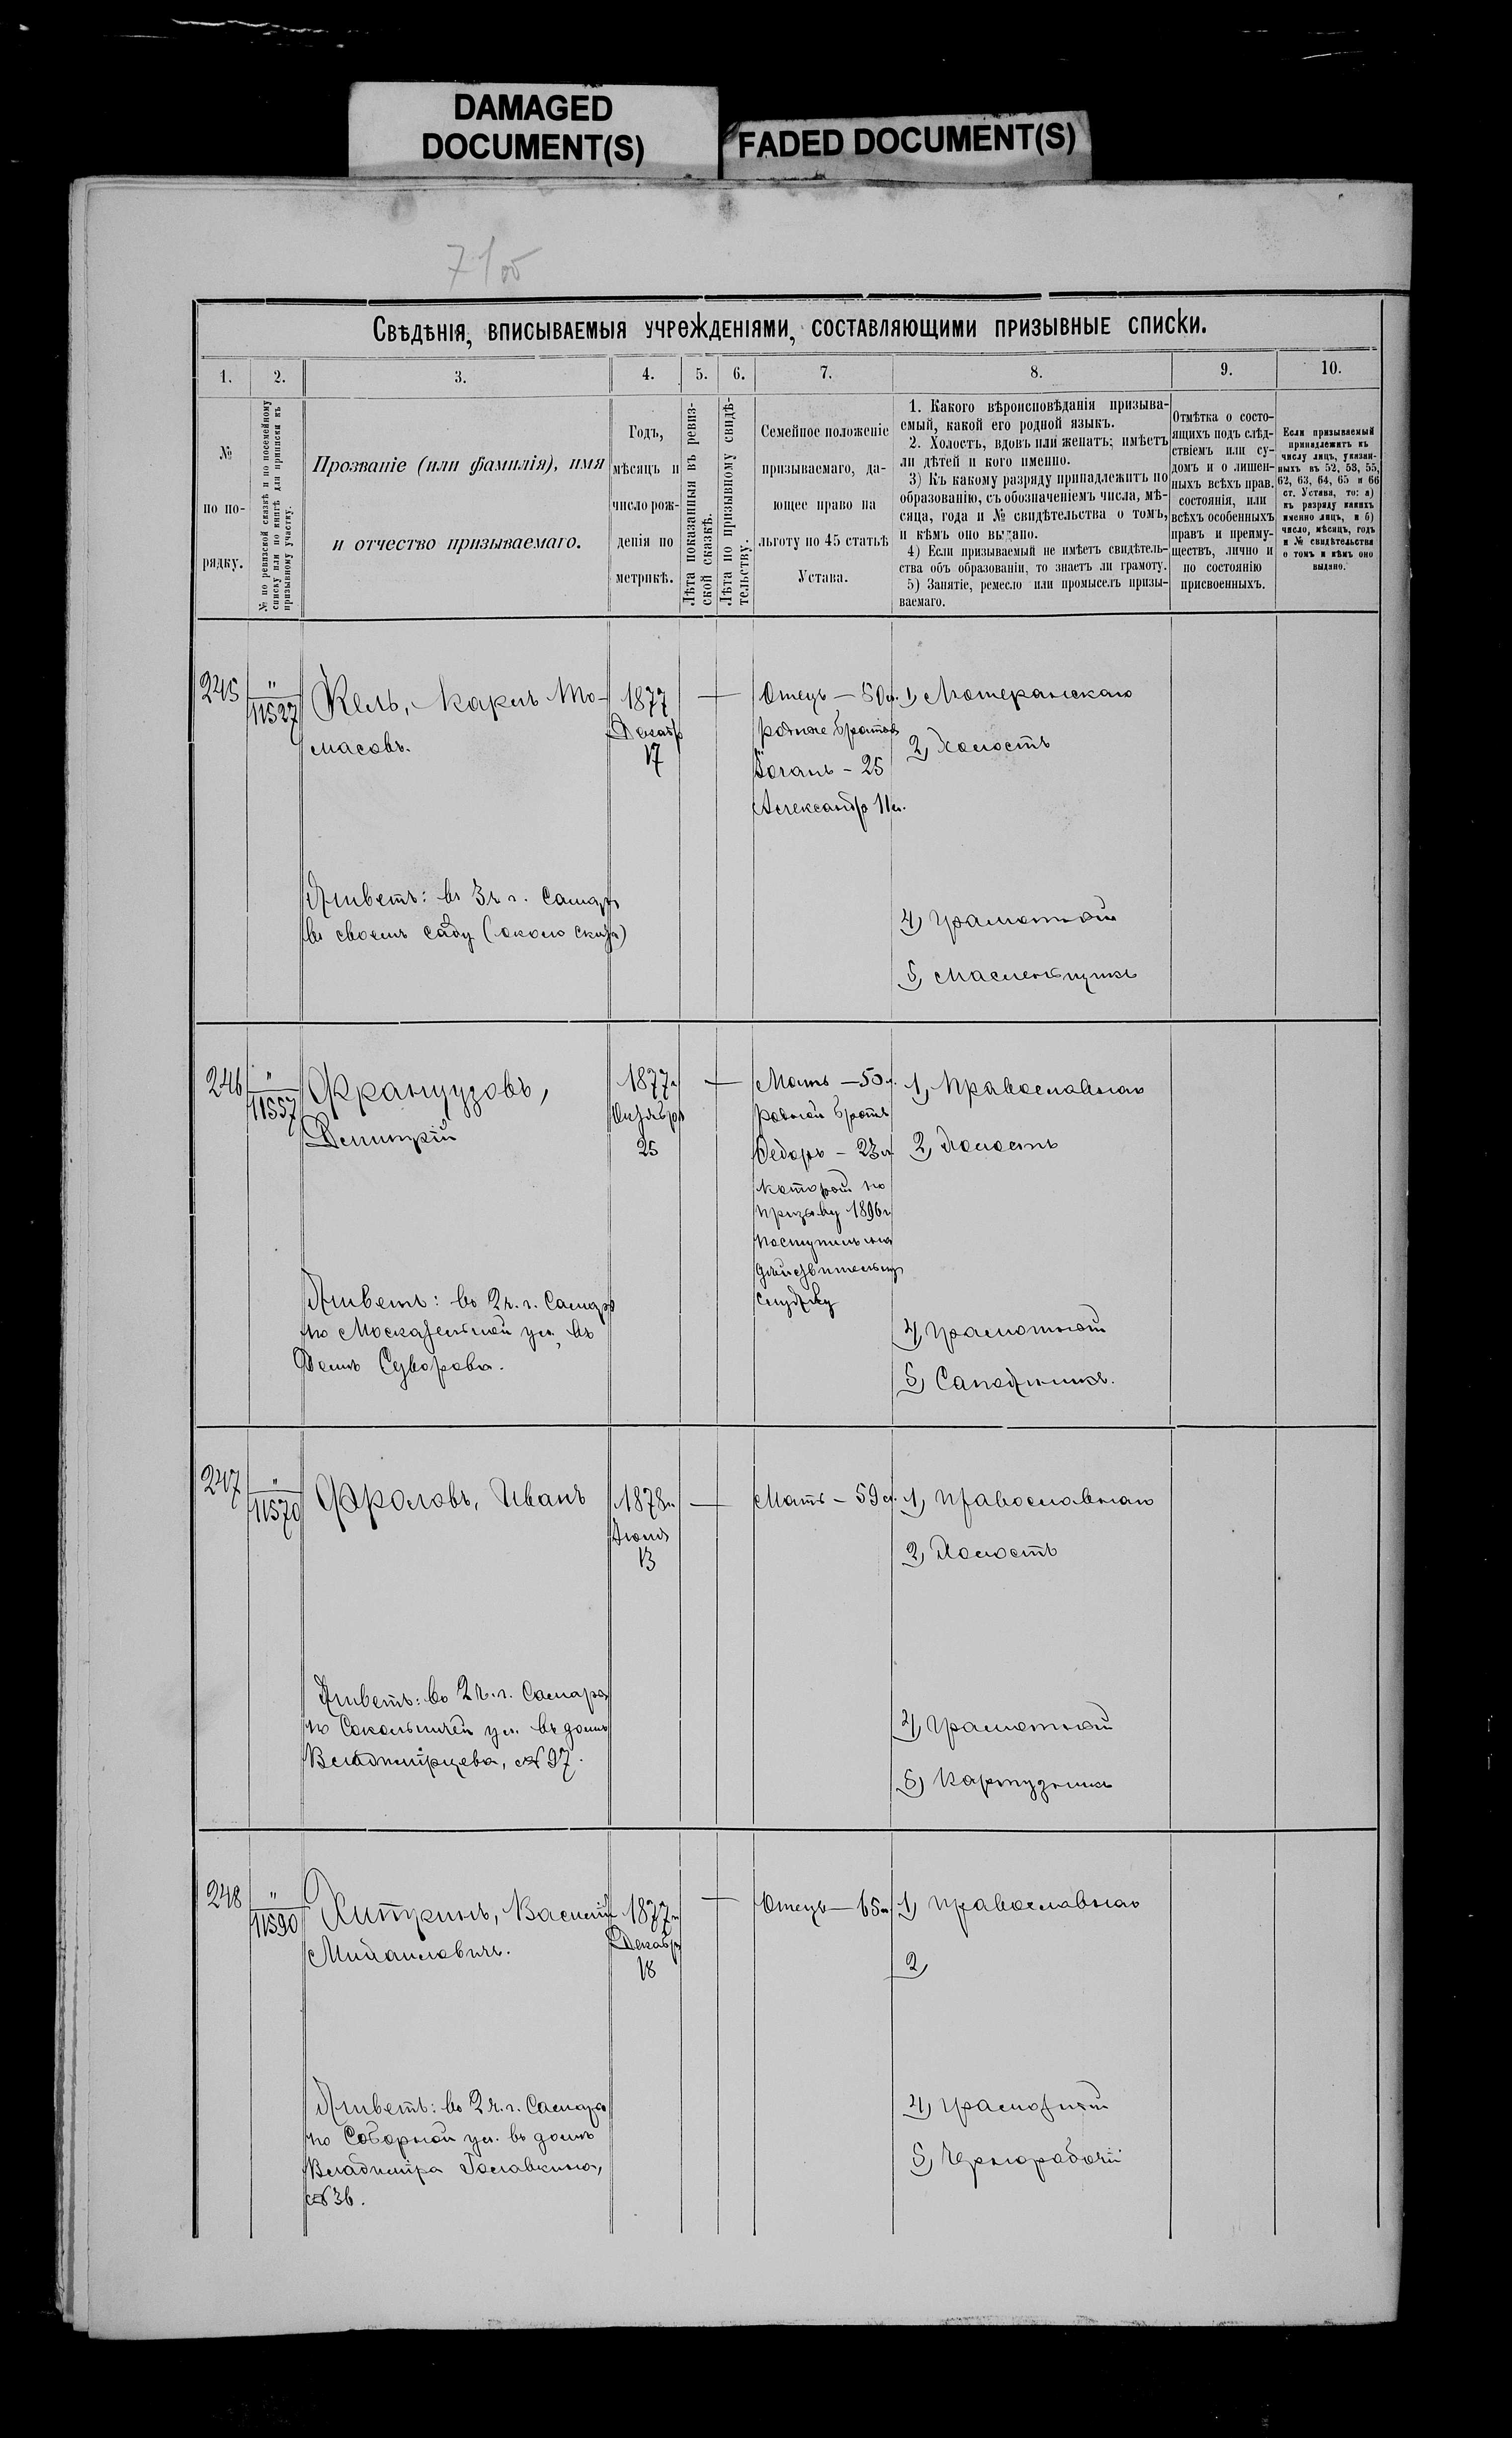 DAMAGED
DOCUMENT(S)
FADED DOCUMENT(S)
Свѣдѣнія, вписываемыя учрежденіями, составляющими призывные списки.
1.
2.
3.
4.
5.
6.
7.
8.
9.
10.
№
по по-
рядку.
№ по ревизской сказкѣ и по посемейному
списку или по книгѣ для приписки къ
призывному участку.
Прозваніе (или фамилія), имя
и отчество призываемаго.
Годъ,
мѣсяцъ и
число рож-
денія по
метрикѣ.
Лѣта показанныя въ ревиз-
ской сказкѣ.
Лѣта по призывному свидѣ-
тельству.
Семейное положеніе
призываемаго, да-
ющее право на
льготу по 45 статьѣ
Устава.
1. Какого вѣроисповѣданія призыва-
емый, какой его родной языкъ.
2. Холостъ, вдовъ или женатъ; имѣетъ
ли дѣтей и кого именно.
3) Къ какому разряду принадлежитъ по
образованію, съ обозначеніемъ числа, мѣ-
сяца, года и № свидѣтельства о томъ,
и кѣмъ оно выдано.
4) Если призываемый не имѣетъ свидѣтель-
ства объ образованіи, то знаетъ ли грамоту.
5) Занятіе, ремесло или промыселъ призы-
ваемаго.
Отмѣтка о состо-
ящихъ подъ слѣд-
ствіемъ или су-
домъ и о лишен-
ныхъ всѣхъ прав.
состоянія, или
всѣхъ особенныхъ
правъ и преиму-
ществъ, лично и
по состоянію
присвоенныхъ.
Если призываемый
принадлежитъ къ
числу лицъ, указан-
ныхъ въ 52, 53, 55,
62, 63, 64, 65 и 66
ст. Устава, то: а)
къ разряду какихъ
именно лицъ, и б)
число, мѣсяцъ, годъ
и № свидѣтельства
о томъ и кѣмъ оно
выдано.
245
"
11527
Кель, Карлъ То-
масовъ.
Живетъ: въ 3 ч. г. Самары
въ своемъ саду (около
1877
Декабр
17
Отецъ — 50 л.
родные братья
Іоганъ – 25
Александр 11 л.
1) Лютеранскаго
2) Холостъ
4) Грамотный
5)
246
"
11557
Французовъ,
Димитрій
Живетъ: во 2 ч. г. Самары
по Москательной ул., въ
домѣ Суворова.
1877 г.
Октября
25
Мать — 50 л.
родной братъ
Ѳедоръ – 23 л
который по
призыву 1896 г.
поступилъ на
дѣйствительную
службу
1) Православнаго
2) Холостъ
4) Грамотный
5) Сапожникъ.
247
"
11570
Фроловъ, Иванъ
Живетъ: во 2 ч. г. Самары
по Сокольничей ул. въ домѣ
Владимірцева, № 97.
1878 г.
13
Мать – 59 л.
1) Православнаго
2) Холостъ
4) Грамотный
5) Картузникъ
248
"
11590
Хитринъ, Василій
Михаиловичъ.
Живетъ: во 2 ч. г. Самары
по Соборной ул. въ домѣ
Владиміра Головкина,
№ 36.
1877 г.
Декабр
18
Отецъ — 65 л
1) Православнаго
2)
4) Грамотный
5) Чернорабочій